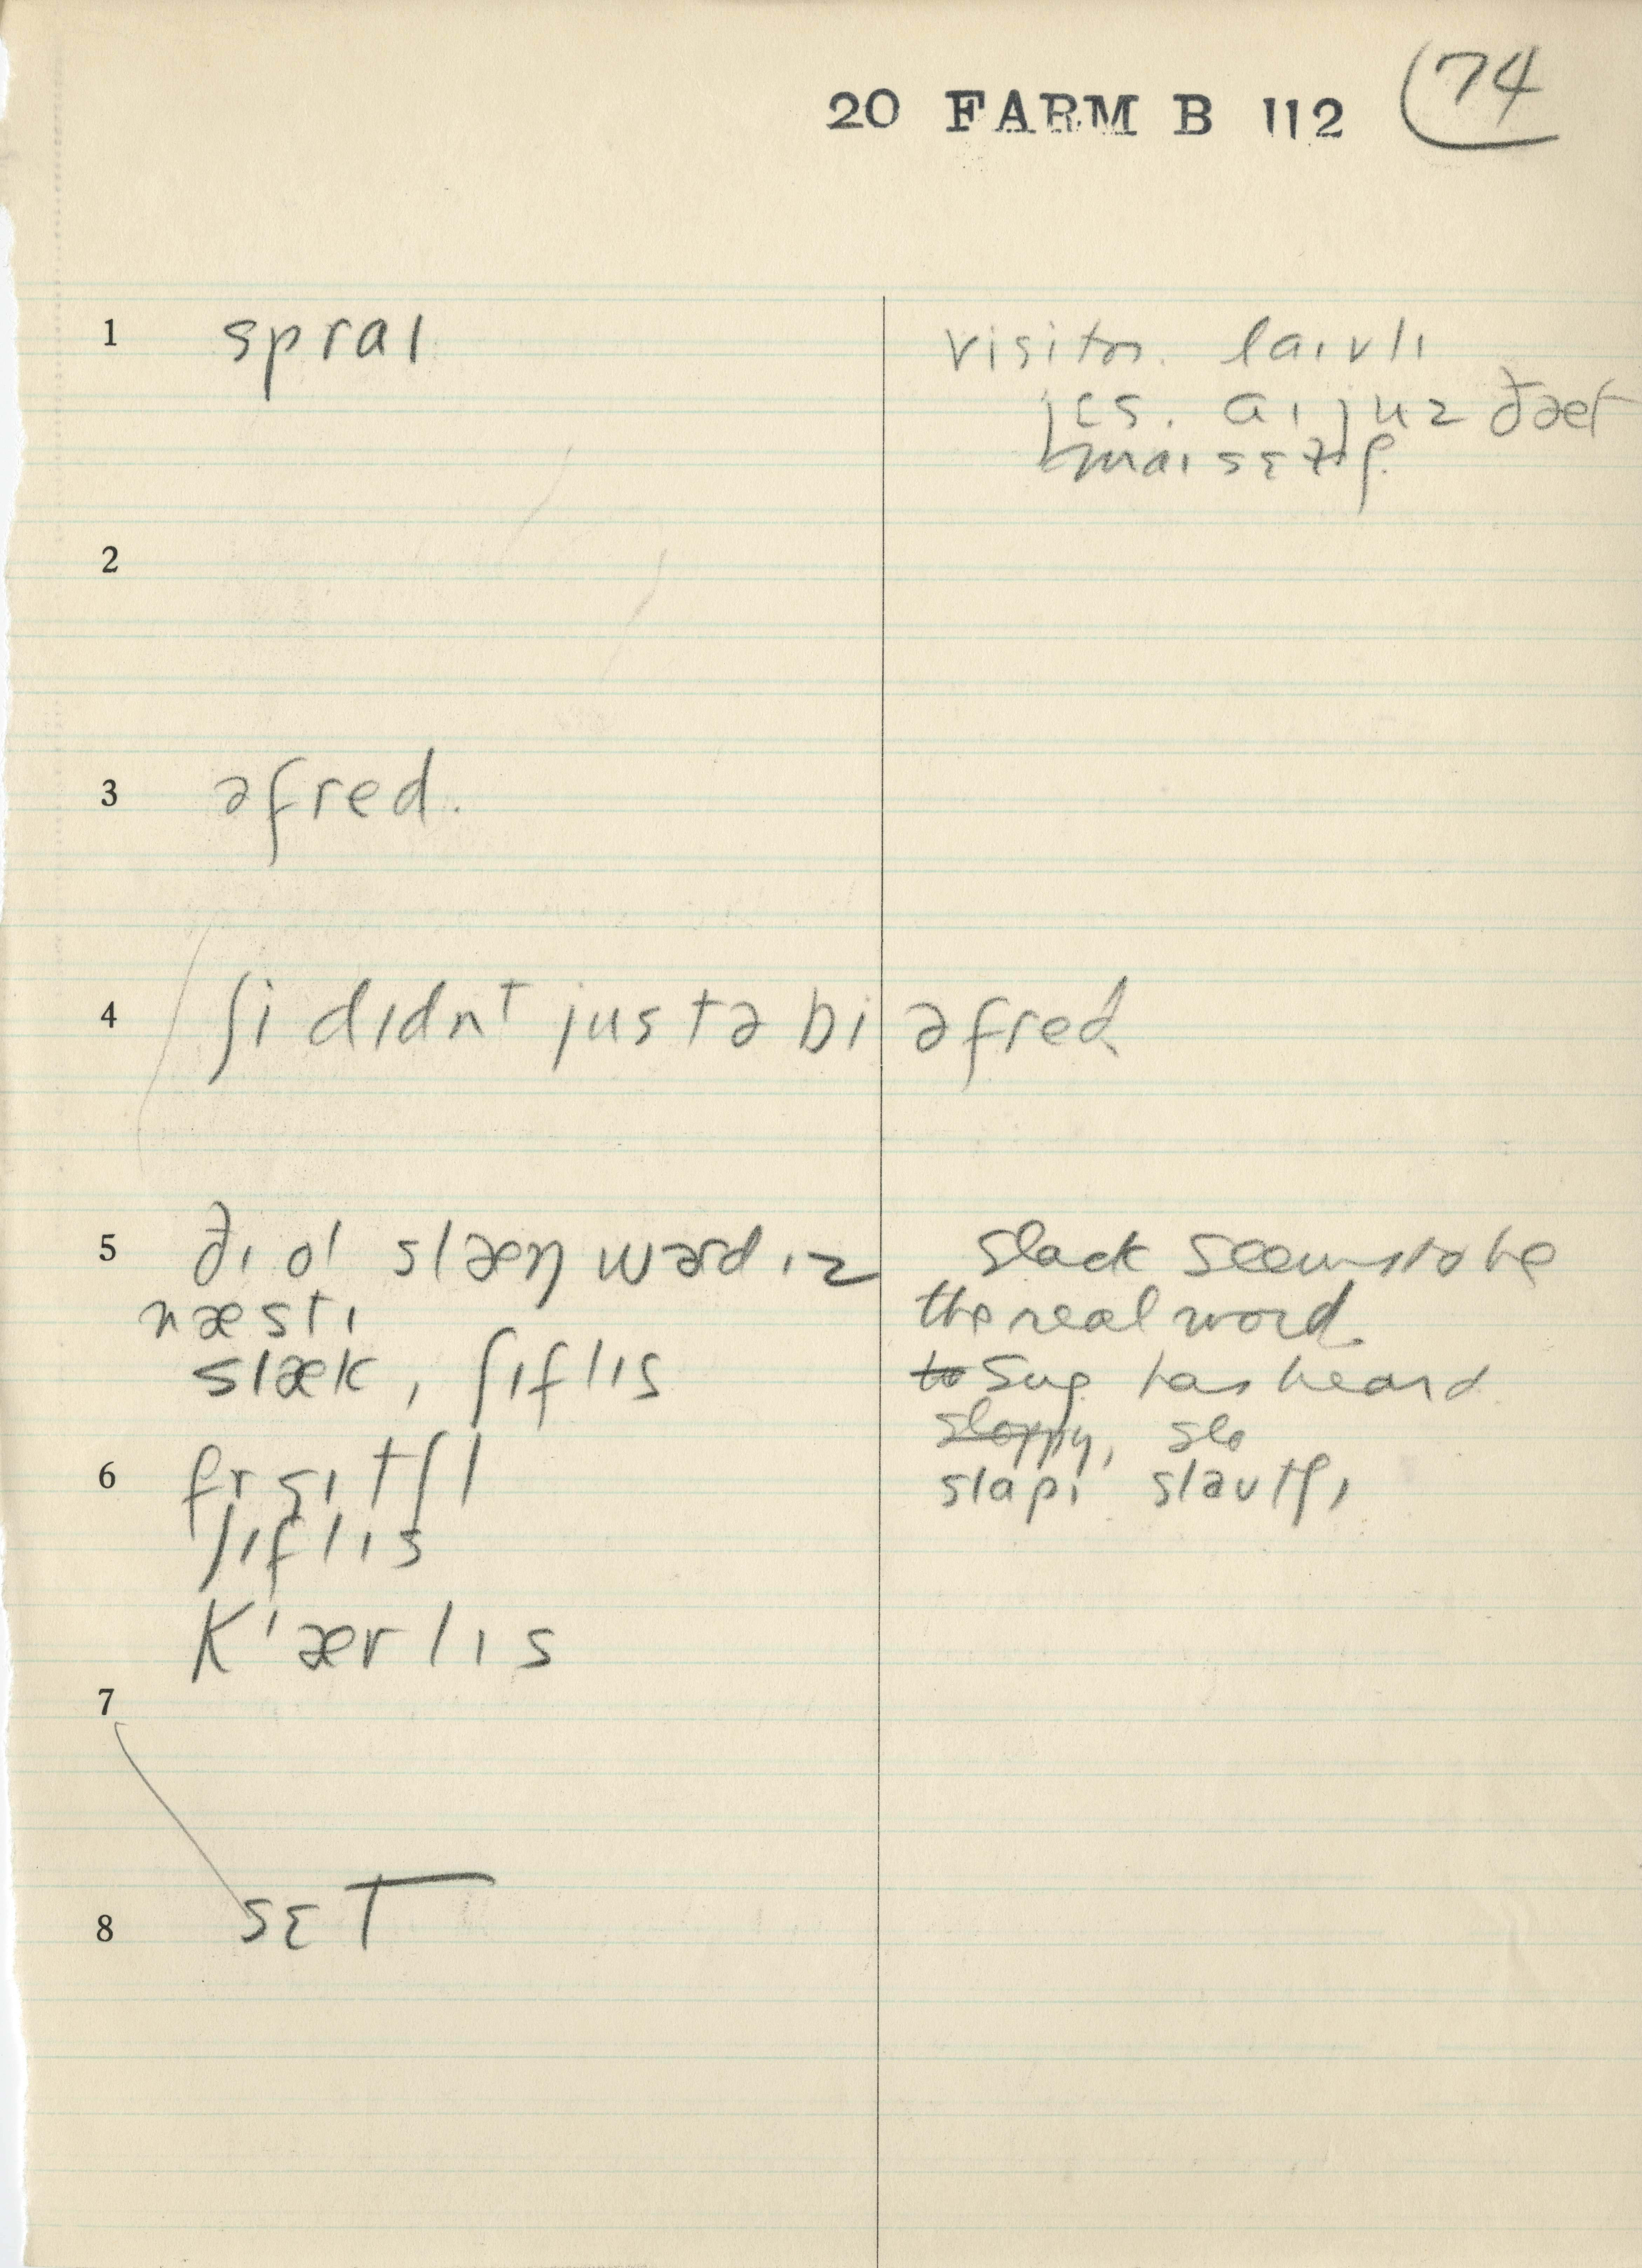 20 FARM B 112 74
1 spraɪ
visitor. laɪvlɪ
jɛs. aɪ juz ðæt
maɪsɛlf.
2
3 əfred.
4 ʃi dɪdnt justə bi əfred
5 ðɪ ol slæŋ wərd ɪz
næstɪ
slæk, ʃɪflɪs
slack seems to be
the real word.
to Sug has heard
sloppy, slo
slapi slautʃɪ
6
ʃɪflɪs
k'ærlɪs
7
8 sɛt